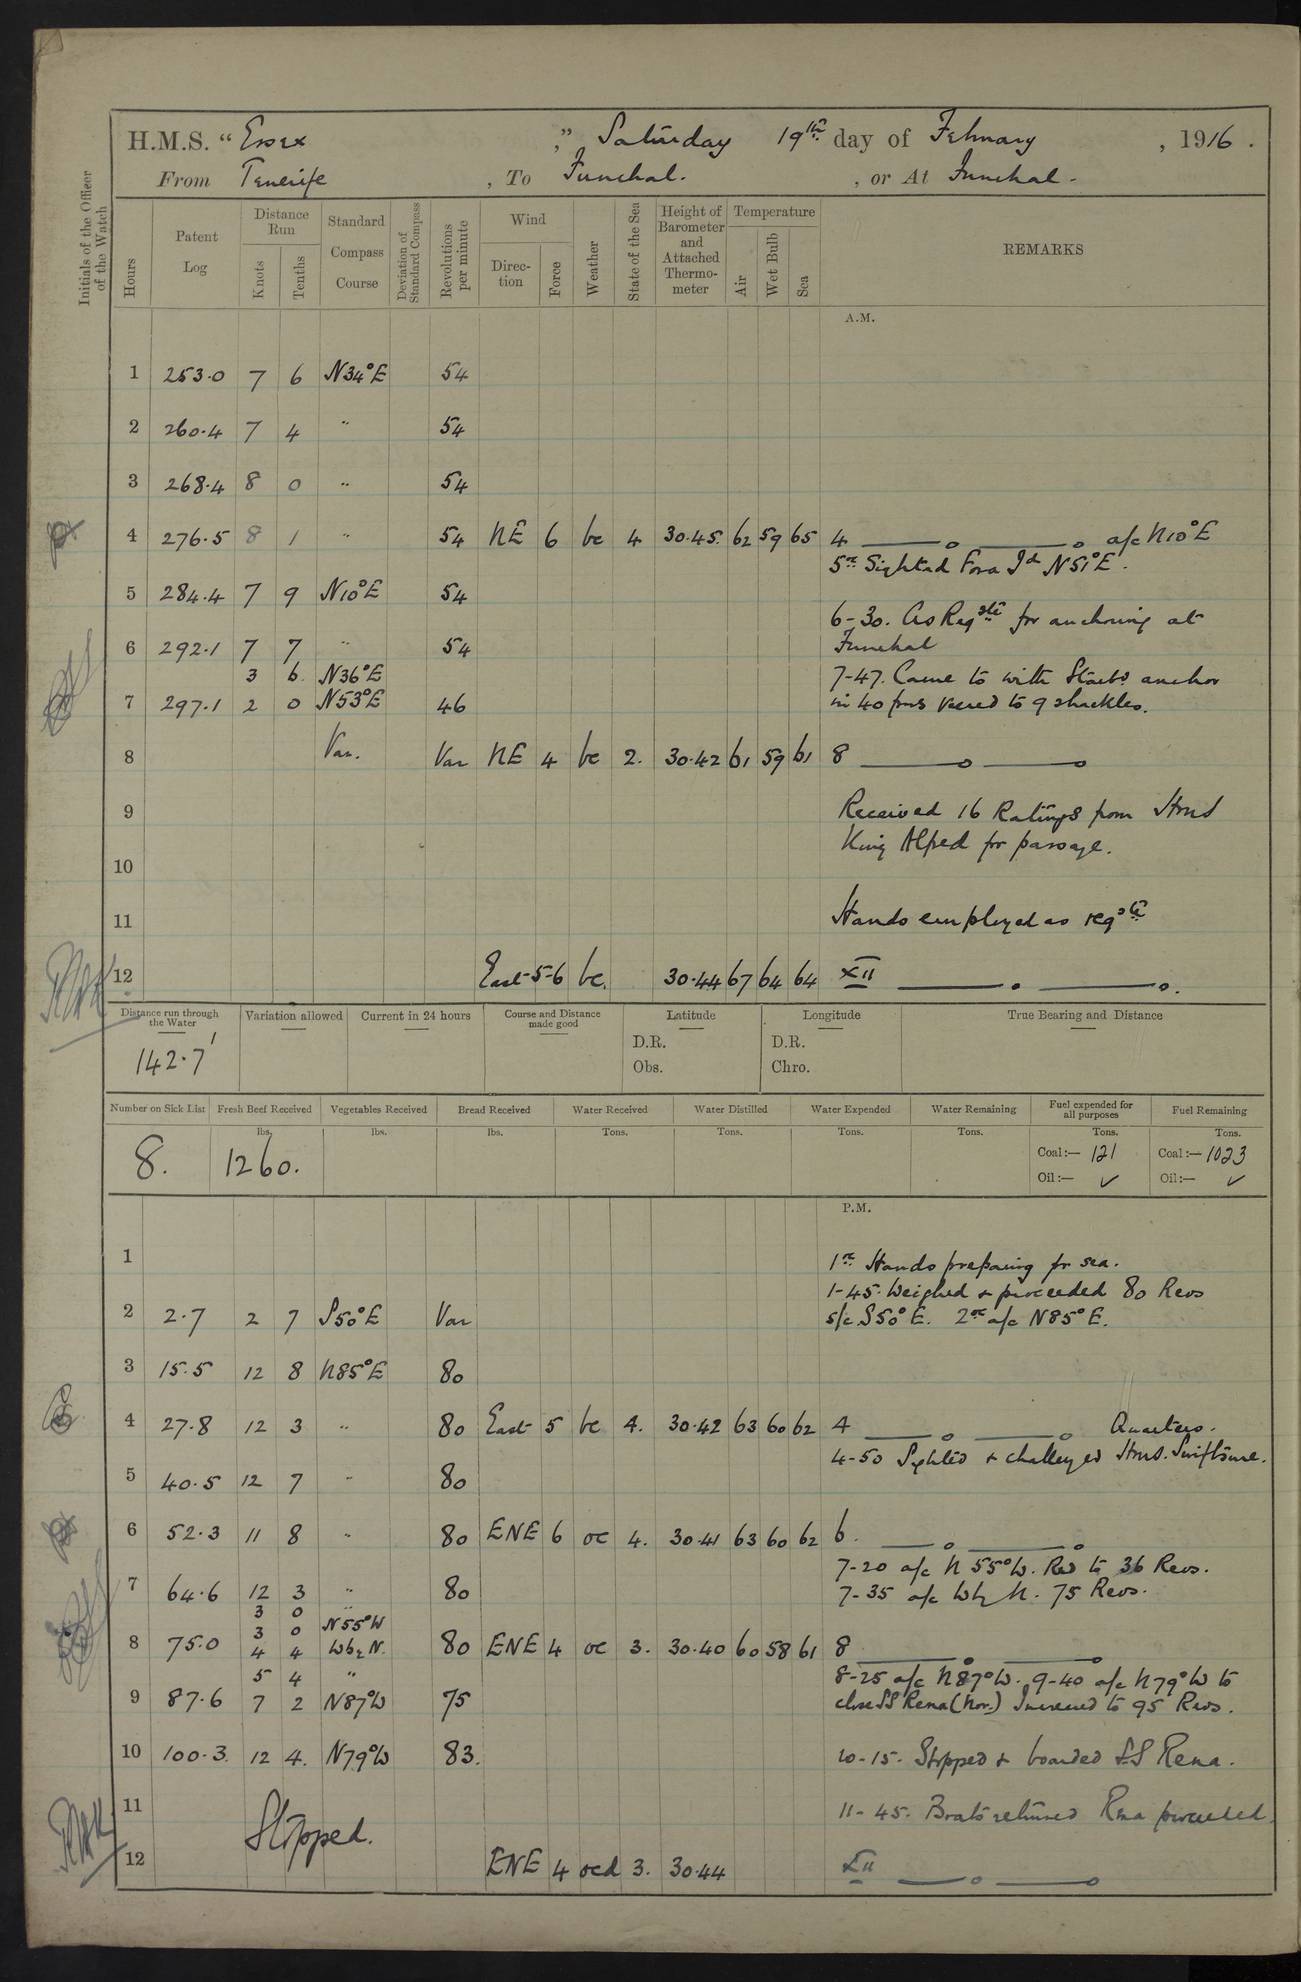 H.M.S. "Essex", Saturday 19th day of February, 1916.
From Tenerife, To Funchal., or At Funchal.
Initials of the Officer of the Watch
Hours
Patent Log
Distance Run
Knots
Tenths
Standard Compass Course
Deviation of Standard Compass
Revolutions per minute
Wind
Direction
Force
Weather
State of the Sea
Height of Barometer and Attached Thermometer
Temperature
Air
Wet Bulb
Sea
REMARKS
A.M.
1 253.0 7 6 N34°E 54
2 260.4 7 4 " 54
3 268.4 8 0 " 54
4 276.5 8 1 " 54 NE 6 bc 4 30.45 62 59 65 4 a/c N10°E
5.00 Sighted Fora Id N51°E.
5 284.4 7 9 N10°E 54
6-30. Co Reqste for anchoring at
6 292.1 7 7 " 54 Funchal
3 6 N36°E 7-47. Came to with Starbd anchor
7 297.1 2 0 N53°E 46 in 40 fms veered to 9 shackles.
8 Var. Var NE 4 bc 2. 30.42 61 59 61 8
9 Received 16 Ratings from HMS
King Alfred for passage.
10
11 Hands employed as reqste
12 East 5-6 bc. 30.44 67 64 64 XII
Distance run through the Water
Variation allowed
Current in 24 hours
Course and Distance made good
Latitude
Longitude
True Bearing and Distance
142.7'
D.R.
Obs.
D.R.
Chro.
Number on Sick List
Fresh Beef Received
Vegetables Received
Bread Received
Water Received
Water Distilled
Water Expended
Water Remaining
Fuel expended for all purposes
Fuel Remaining
lbs. lbs. lbs. Tons. Tons. Tons. Tons. Tons. Tons.
8. 1260. Coal:— 121 Coal:— 1023
Oil:— ✓ Oil:— ✓
P.M.
1 1.00 Hands preparing for sea.
1-45. Weighed & proceeded 80 Revs
2 2.7 2 7 S50°E Var s/c S50°E. 2.00 a/c N85°E.
3 15.5 12 8 N85°E 80
4 27.8 12 3 " 80 East 5 bc 4. 30.42 63 60 62 4 Quarters.
4-50 Sighted & challenged HMS. Swiftsure.
5 40.5 12 7 " 80
6 52.3 11 8 " 80 ENE 6 oc 4. 30.41 63 60 62 6.
7-20 a/c N55°W. Red to 36 Revs.
7 64.6 12 3 " 80 7-35 a/c WbyN. 75 Revs.
3 0 "
3 0 N55°W
8 75.0 4 4 WbyN. 80 ENE 4 oc 3. 30.40 60 58 61 8
5 4 " 8-25 a/c N87°W. 9-40 a/c N79°W to
9 87.6 7 2 N87°W 75 close SS Rena (Nor.) Increased to 95 Revs.
10 100.3. 12 4. N79°W 83. 10-15. Stopped & boarded S.S Rena.
11 Stopped. 11-45. Boats returned Rena proceeded.
12 ENE 4 ocd 3. 30.44 XII